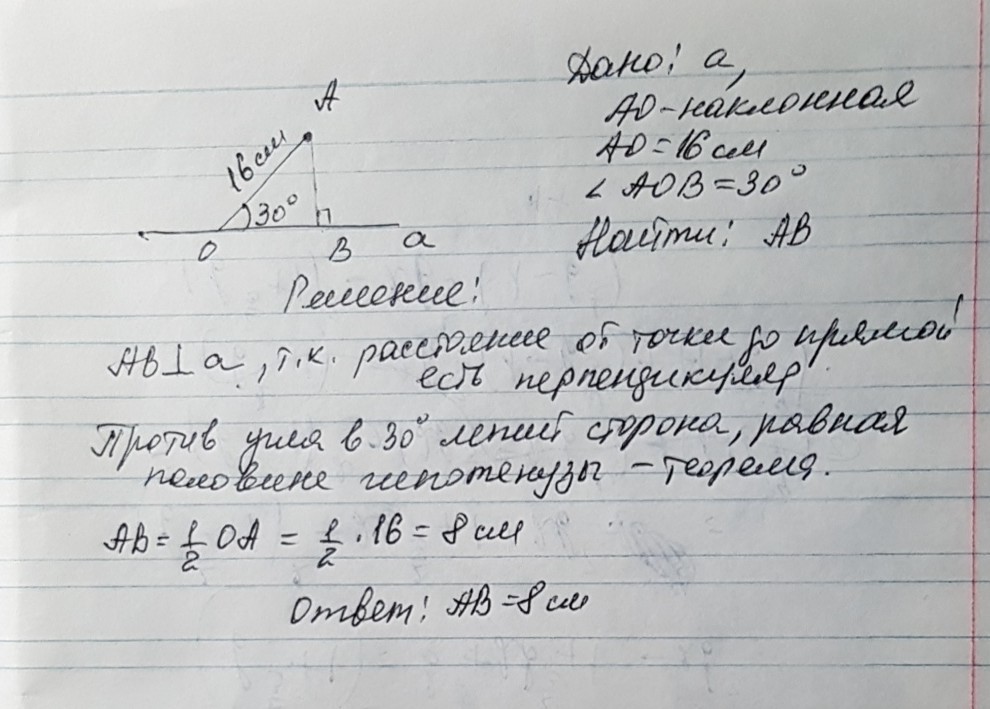 A
16 см
30°
O B a
Дано: a,
АО - наклонная
АО = 16 см
∠ АОВ = 30°
Найти: АВ
Решение:
АВ ⊥ a, т.к. расстояние от точки до прямой
есть перпендикуляр
Против угла в 30° лежит сторона, равная
половине гипотенузы - теорема.
АВ = 1/2 ОА = 1/2 · 16 = 8 см
Ответ: АВ = 8 см